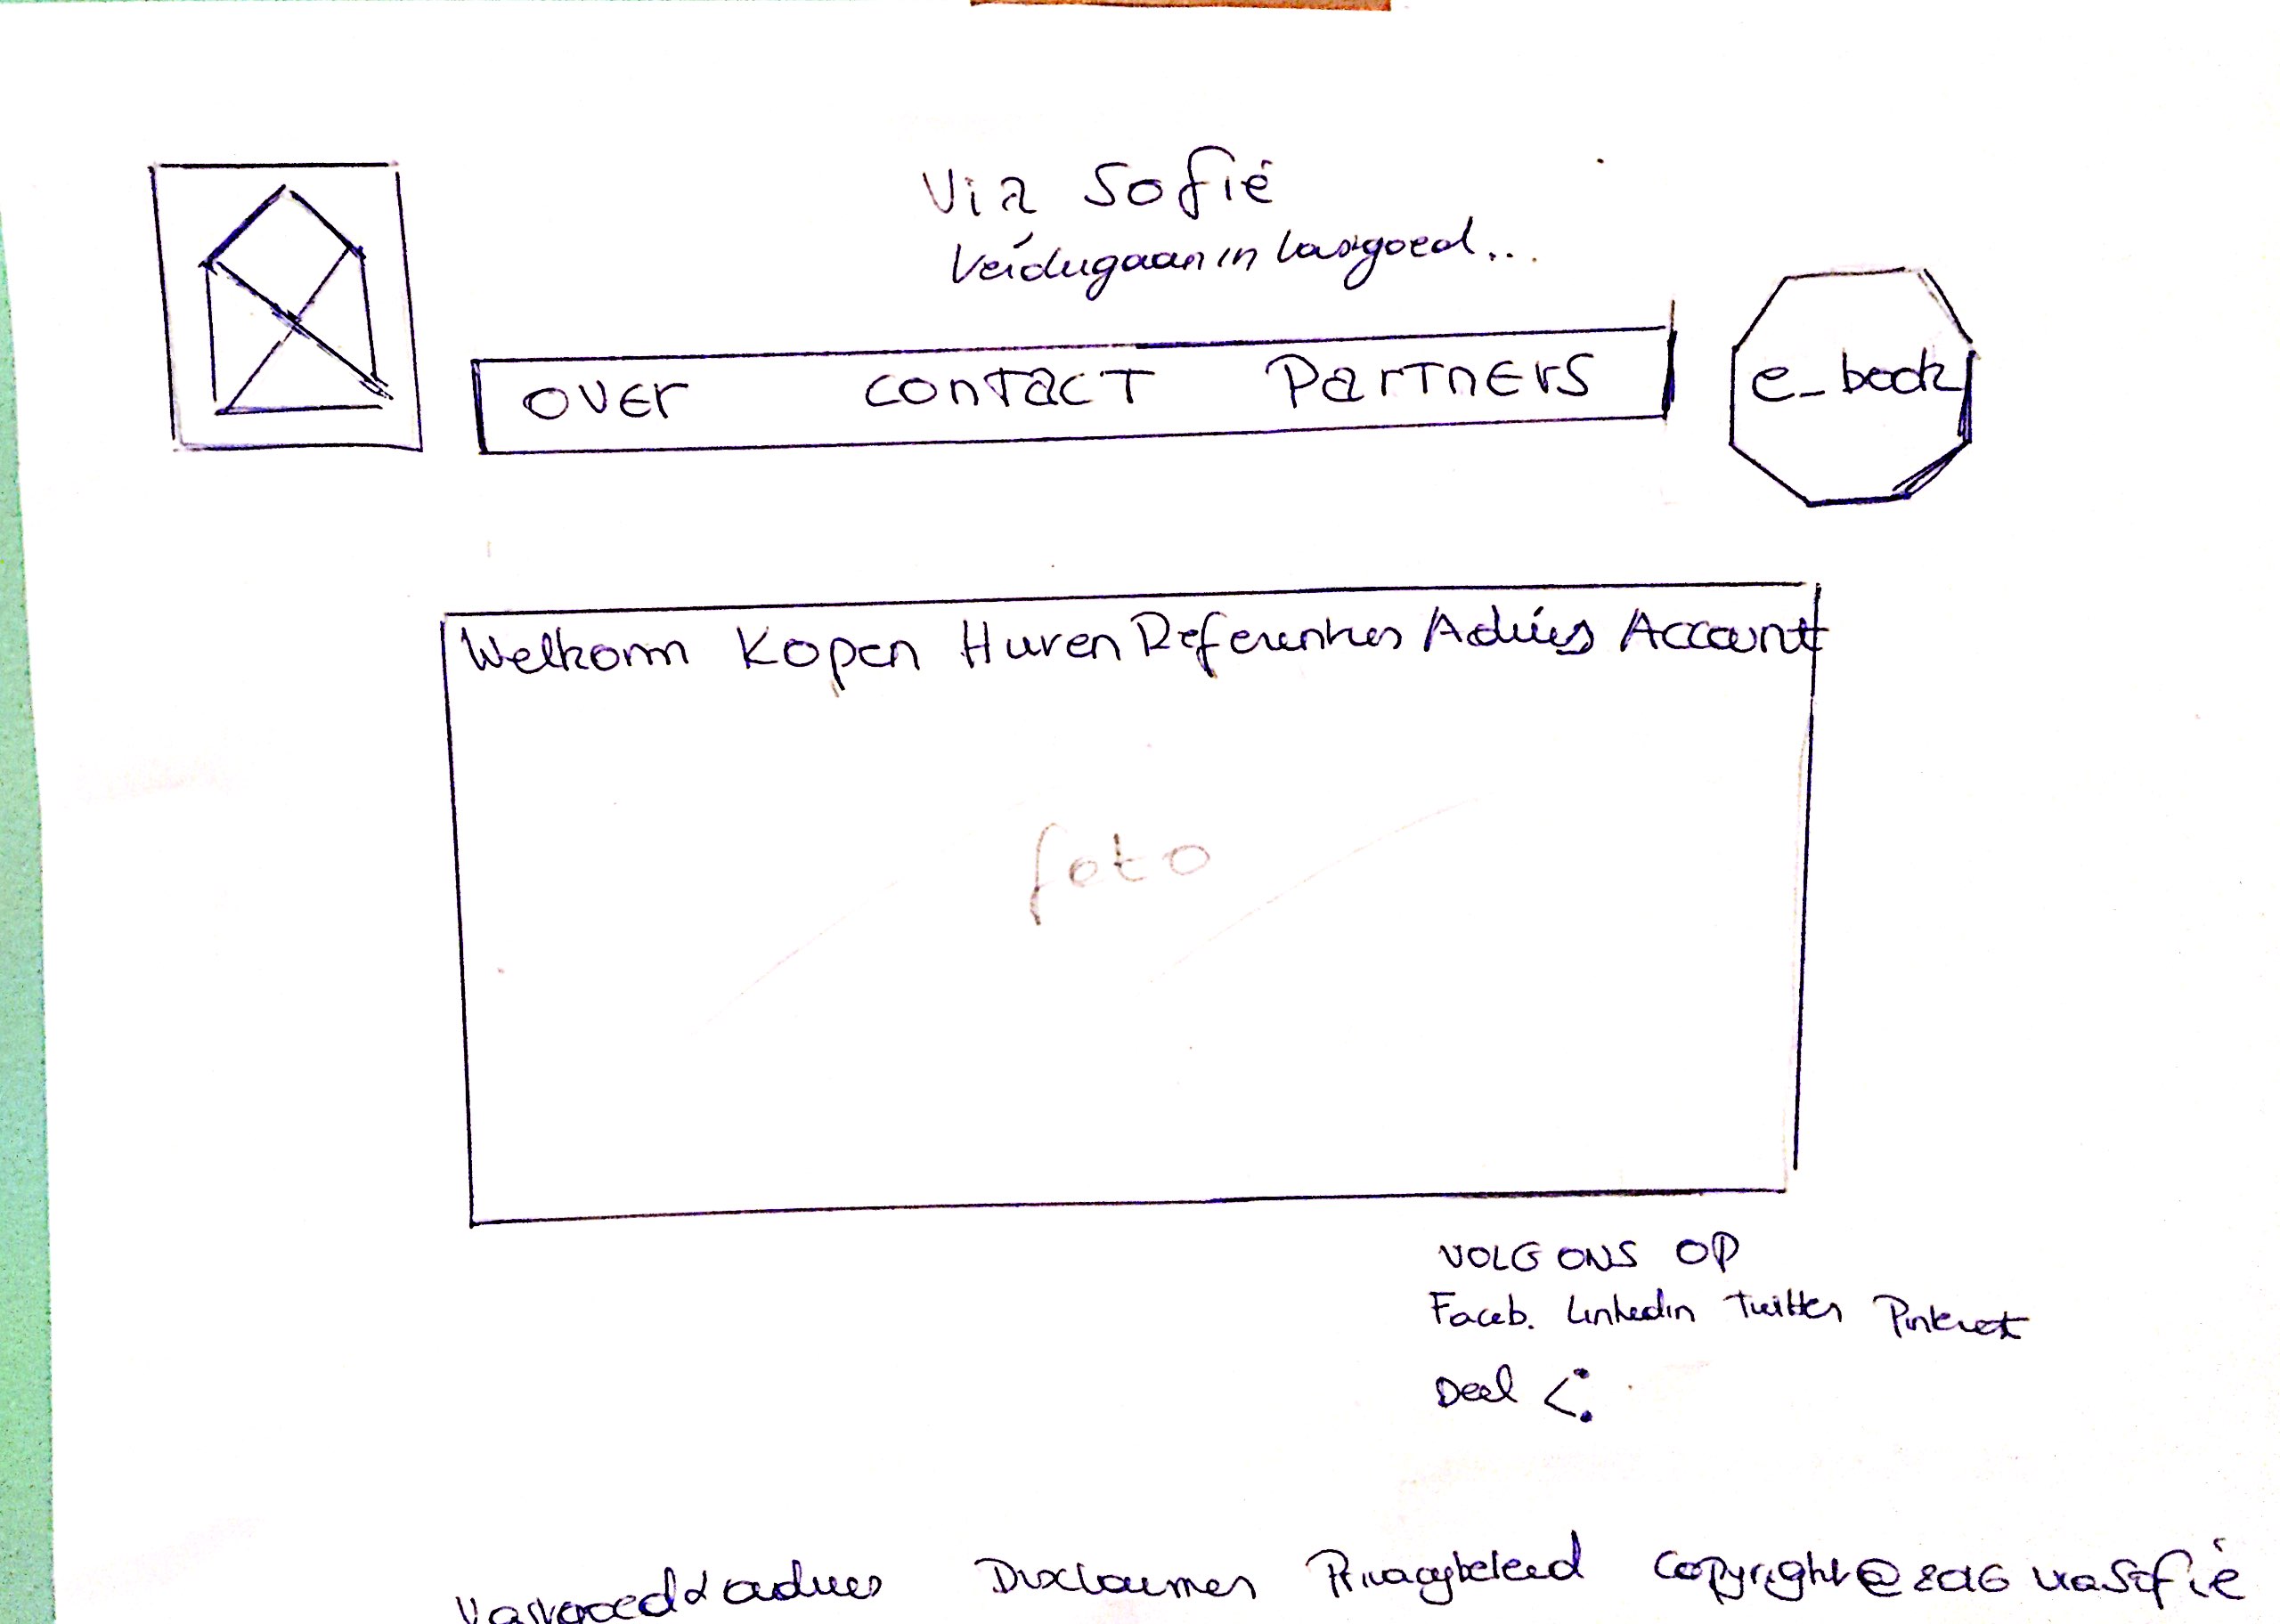 Via Sofie
Verdergaan in vastgoed...
OVER CONTACT PARTNERS
e-book
Welkom Kopen Huren Referenties Advies Account
foto
VOLG ONS OP
Faceb. Linkedin Twitter Pinterest
Deel
Vastgoed & advies Disclaimer Privacybeleid Copyright @ 2016 via Sofie